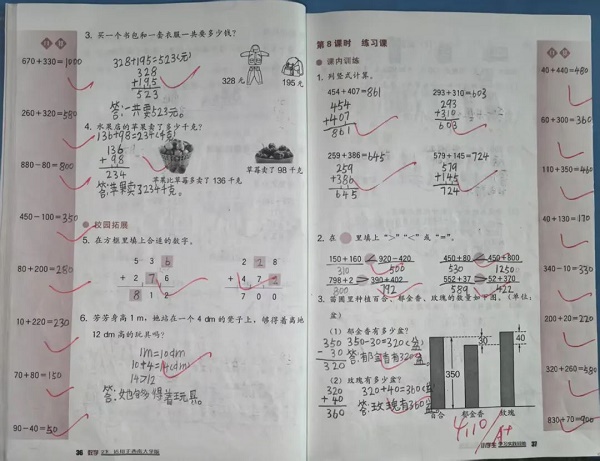 口算
670+330=1000
260+320=580
880-80=800
450-100=350
80+200=280
10+220=230
70+80=150
90-40=50
3. 买一个书包和一套衣服一共要多少钱?
328+195=523(元)
328
+195
523
答:一共要523元。
328 元
195 元
4. 水果店的苹果卖了多少千克?
136+98=234(千克)
136
+98
234
答:苹果卖了234千克。
苹果比草莓多卖了 136 千克
草莓卖了 98 千克
校园拓展
5. 在方框里填上合适的数字。
5 3 6
+ 2 7 6
8 1 2
2 2 8
+ 4 7 2
7 0 0
6. 芳芳身高 1 m,她站在一个 4 dm 的凳子上,能够得着离地
12 dm 高的玩具吗?
1m=10dm
10+4=14(dm)
14>12
答:她能够得着玩具。
36 数学
第 8 课时 练习课
课内训练
1. 列竖式计算。
454+407=861
454
+407
861
293+310=603
293
+310
603
259+386=645
259
+386
645
579+145=724
579
+145
724
2. 在 里填上“>”“<”或“=”。
150+160 < 920-420
310 500
450+80 < 450+800
530 1250
798+2 > 390+402
800 792
552+37 > 52+370
589 422
3. 苗圃里种植百合、郁金香、玫瑰的数量如下图。(单位:
盆)
(1) 郁金香有多少盆?
350-30=320(盆)
350
-30
320
答:郁金香有320盆。
(2) 玫瑰有多少盆?
320+40=360(盆)
320
+40
360
答:玫瑰有360盆。
350
30
40
百合 郁金香 玫瑰
A+
37
口算
40+440=480
60+300=360
110+350=460
40+130=170
340-10=330
200+20=220
320+260=580
830+70=900